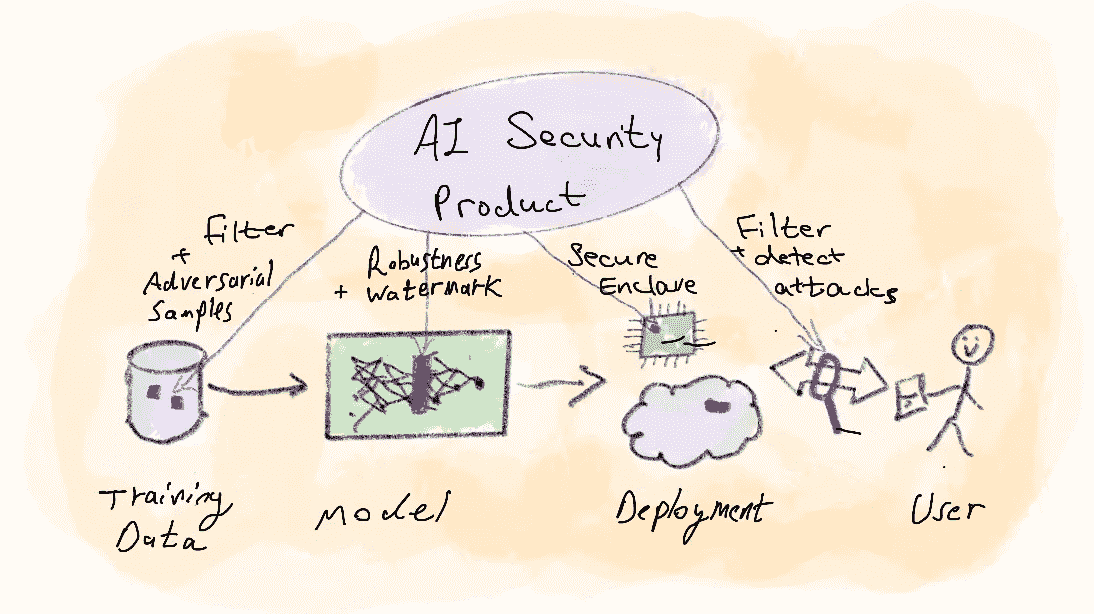 AI Security
Product
Filter
+
Adversarial
Samples
Robustness
+ Watermark
Secure
Enclave
Filter
+ detect
attacks
Training
Data
Model
Deployment
User